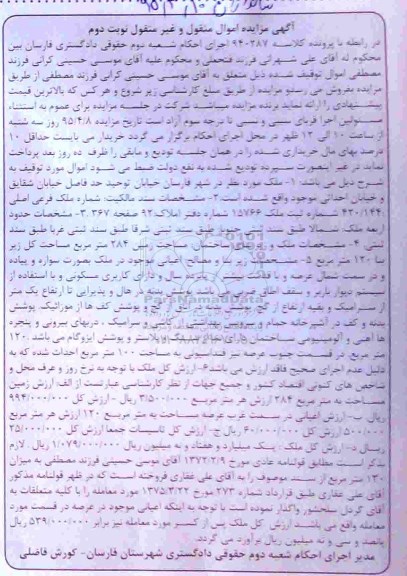 آگهی مزایده اموال منقول و غیر منقول نوبت دوم
در رابطه با پرونده کلاسه ۹۴۰۲۸۷ اجرای احکام شعبه دوم حقوقی دادگستری فارسان بین
محکوم له آقای علی شهرانی فرزند فتحعلی و محکوم علیه آقای موسی حسینی کرانی فرزند
مصطفی اموال توقیف شده ذیل متعلق به آقای موسی حسینی کرانی فرزند مصطفی از طریق
مزایده بفروش می رسد و مزایده از طریق مبلغ کارشناسی زیر شروع و هر کس که بالاترین قیمت
پیشنهادی را ارائه نماید برنده مزایده میباشد شرکت در جلسه مزایده برای عموم به استثناء
مسئولین اجرا قربای سببی و نسبی تا درجه سوم آزاد است تاریخ مزایده ۹۵/۴/۸ روز سه شنبه
از ساعت ۱۰ الی ۱۲ ظهر در محل اجرای احکام برگزار می گردد خریدار می بایست حداقل ۱۰
درصد بهای مال خریداری شده را در همان جلسه تودیع و مابقی را ظرف ده روز بعد پرداخت
نماید در غیر اینصورت سپرده تودیع شده به نفع دولت ضبط می شود اموال مورد توقیف به
شرح ذیل می باشد: ۱- ملک مورد نظر در شهر فارسان خیابان توحید حد فاصل خیابان شقایق
و خیابان احداثی موجود واقع شده است ۲- مشخصات سند مالکیت: شماره ملک فرعی اصلی
۴۲۰/۱۴۴۰ شماره ثبت ملک ۱۵۷۶۶ شماره دفتر املاک ۹۲ صفحه ۳۶۷ ۳- مشخصات حدود
اربعه ملک: شمالا طبق سند ثبتی جنوبا طبق سند ثبتی شرقا طبق سند ثبتی غربا طبق سند
ثبتی. ۴- مشخصات ملک و زیربنای ساختمان: مساحت زمین ۲۸۴ متر مربع مساحت کل زیر
بنا ۱۲۰ متر مربع ۵- مشخصات زیر بنا و مصالح اعیانی موجود در ملک بصورت سواره و پیاده
و در سمت شمال عرصه و با قدمت بیشتر از پانزده سال و دارای کاربری مسکونی و با استفاده از
سیستم دیوار باربر و سقف اطاق ضربی می باشد پوشش بدنه در هال و پذیرایی تا ارتفاع یک متر
از سرامیک و بقیه ارتفاع از گچ، پوشش بدنه در اتاق از گچ و پوشش کف ها از موزائیک، پوشش
بدنه و کف در آشپزخانه حمام و سرویس بهداشتی از کاشی و سرامیک ، دربهای بیرونی و پنجره
ها آهنی و آلومینیومی ساختمان دارای نمای سنگ و پلاستر و پوشش ایزوگام می باشد. ۱۲۰
متر مربع، در قسمت جنوب عرصه نیز فنداسیونی به مساحت ۱۰۰ متر مربع احداث شده که به
دلیل عدم اجرای صحیح فاقد ارزش می باشد ۶- ارزش کل ملک با توجه به نرخ روز و عرف محل و
شاخص های کنونی اقتصاد کشور و جمیع جهات از نظر کارشناسی عبارتست از الف: ارزش زمین
مساحت به متر مربع ۲۸۴ ارزش هر متر مربع ۳/۵۰۰/۰۰۰ ریال - ارزش کل ۹۹۴/۰۰۰/۰۰۰
ریال. ب- ارزش اعیانی در سمت غرب عرصه مساحت به متر مربع ۱۲۰ ارزش هر متر مربع
۵۰۰/۰۰۰ ارزش کل ۶۰/۰۰۰/۰۰۰ ریال ج- ارزش کل تاسیسات جمعا ارزش کل ۲۵/۰۰۰/۰۰۰
ریال د- ارزش کل ملک . یک میلیارد و هفتاد و نه میلیون ریال ۱/۰۷۹/۰۰۰/۰۰۰ ریال . لازم
بذکر است مطابق قولنامه عادی مورخ ۱۳۷۲/۲/۹ آقای موسی حسینی فرزند مصطفی به میزان
۱۳۰ متر مربع از سند موصوف را به آقای علی غفاری فروخته است که در ظهر قولنامه مذکور
آقای علی غفاری طبق قرارداد شماره ۲۷۳ مورخ ۱۳۷۵/۳/۲۲ مورد معامله را با کلیه متعلقات به
آقای گردل سلحشور واگذار نموده است با توجه به اینکه اعیانی موجود در عرصه در قسمت مورد
معامله واقع می باشد ارزش کل ملک پس از کسر مورد معامله نیز برابر ۵۳۹/۰۰۰/۰۰۰ ریال
پانصد و سی و نه میلیون ریال برآورد می گردد.
مدیر اجرای احکام شعبه دوم حقوقی دادگستری شهرستان فارسان- کورش فاضلی